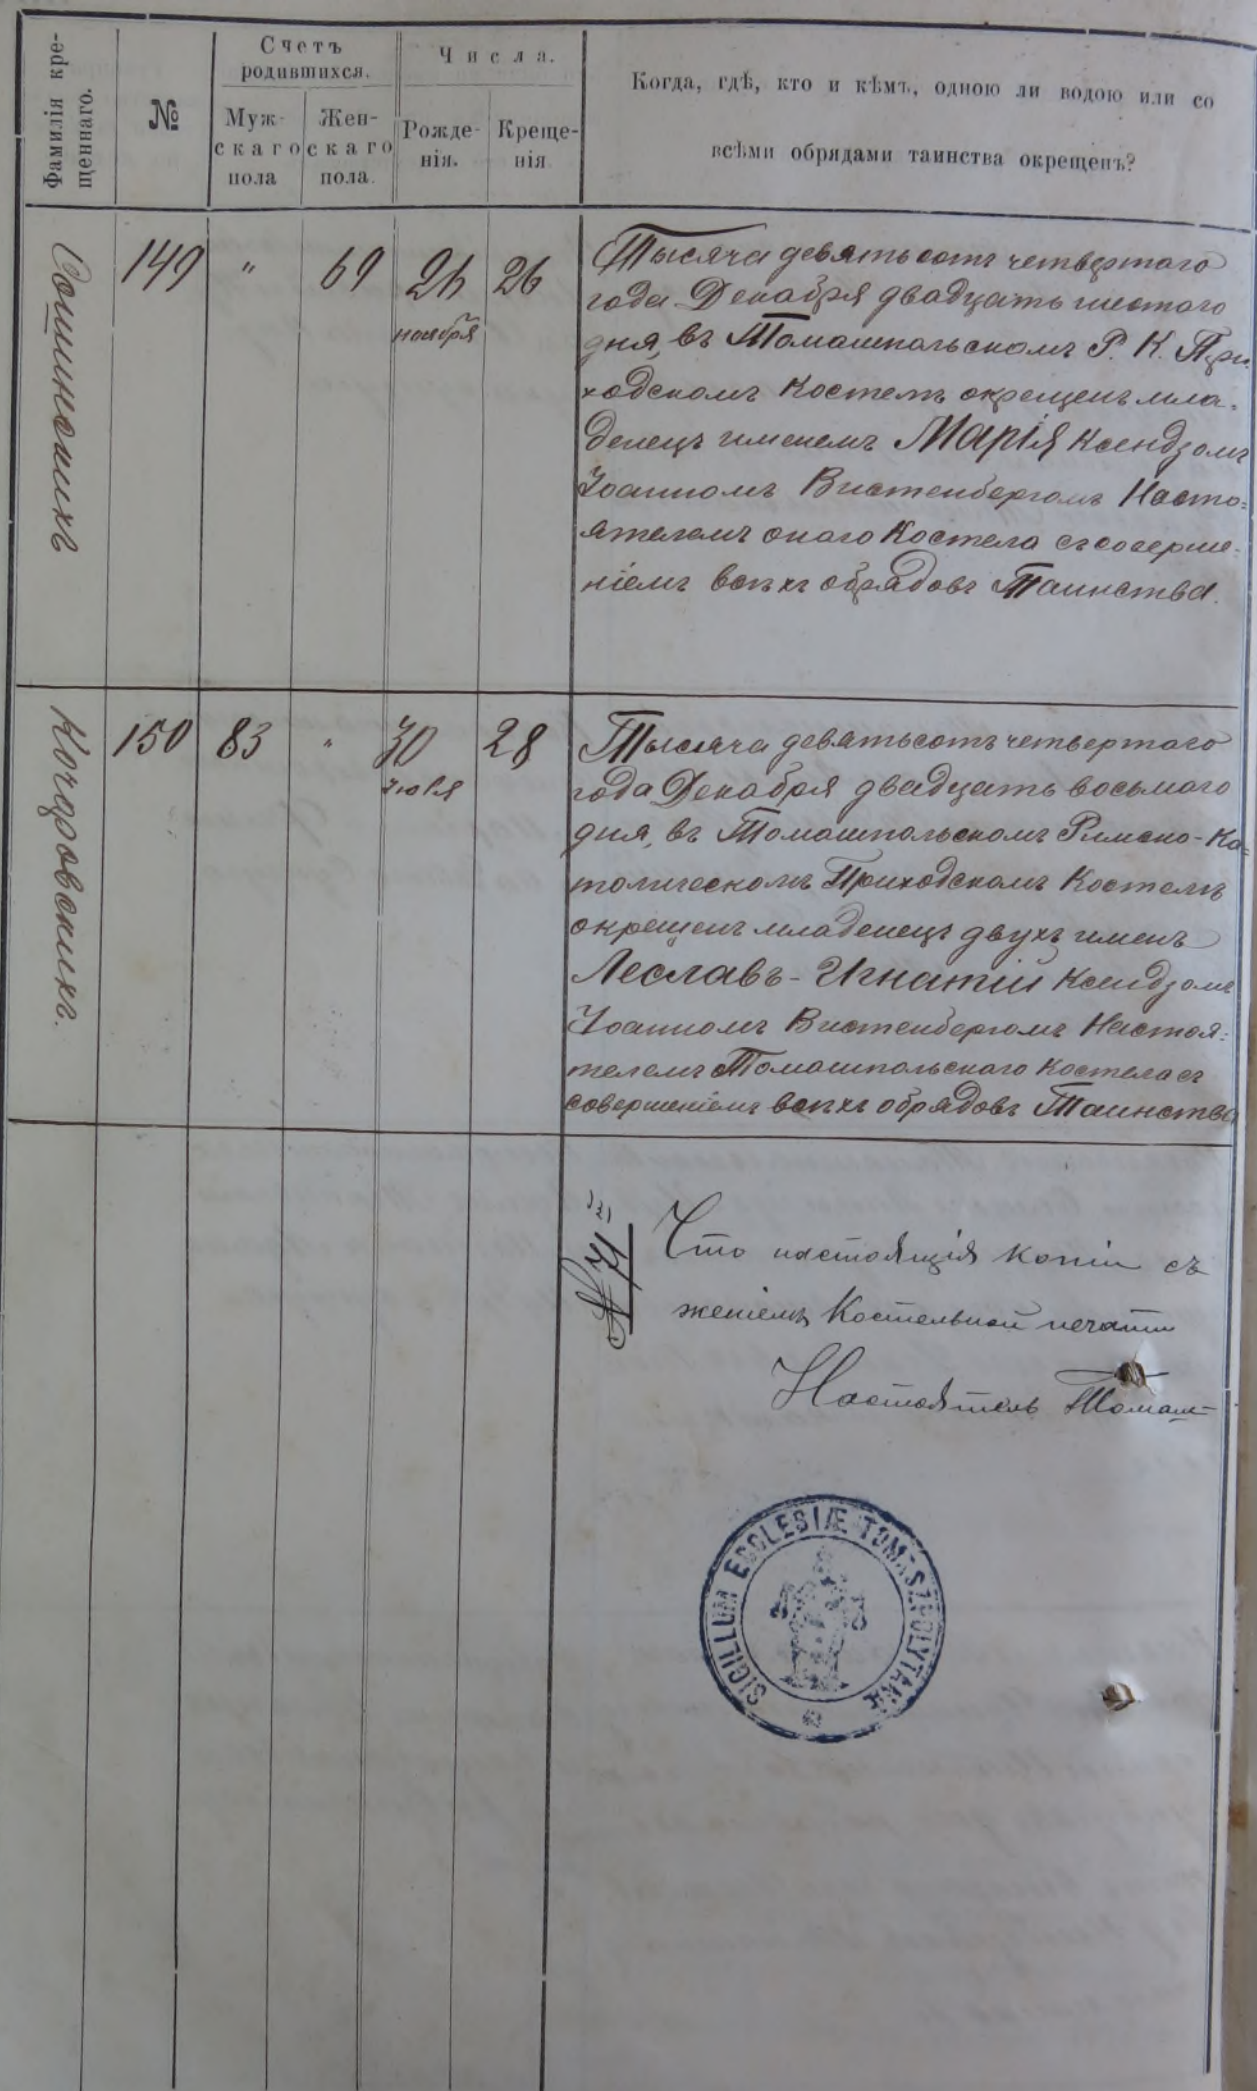 Фамилія кре-
щеннаго.
№
Счетъ
родившихся.
Муж-
скаго
пола
Жен-
скаго
пола.
Числа.
Рожде-
нія.
Креще-
нія
Когда, гдѣ, кто и кѣмъ, одною ли водою или со
всѣми обрядами таинства окрещенъ?
149
"
69
26
ноября
26
Тысяча девятьсотъ четвертого
года Декабря двадцать шестого
дня, въ Томашпольскомъ Р. К. При
ходскомъ Костелѣ окрещенъ мла-
денецъ именемъ Марія Ксендзомъ
Іоанномъ Виттенбергомъ Насто-
ятелемъ онаго Костела съ соверше-
ніемъ всѣхъ обрядовъ Таинства.
Кочаровскихъ.
150
83
"
30
Іюля
28
Тысяча девятьсотъ четвертого
года Декабря двадцать восьмого
дня, въ Томашпольскомъ Римско-Ка-
толическомъ Приходскомъ Костелѣ
окрещенъ младенецъ двухъ именъ
Леславъ-Игнатій Ксендзомъ
Іоанномъ Виттенбергомъ Настоя-
телемъ Томашпольскаго Костела съ
совершеніемъ всѣхъ обрядовъ Таинства
Что настоящія копіи съ
женіемъ Костельной печати
Настоятель Томаш-
SIGILLUM ECCLESIÆ TOMASZPOLYTANÆ